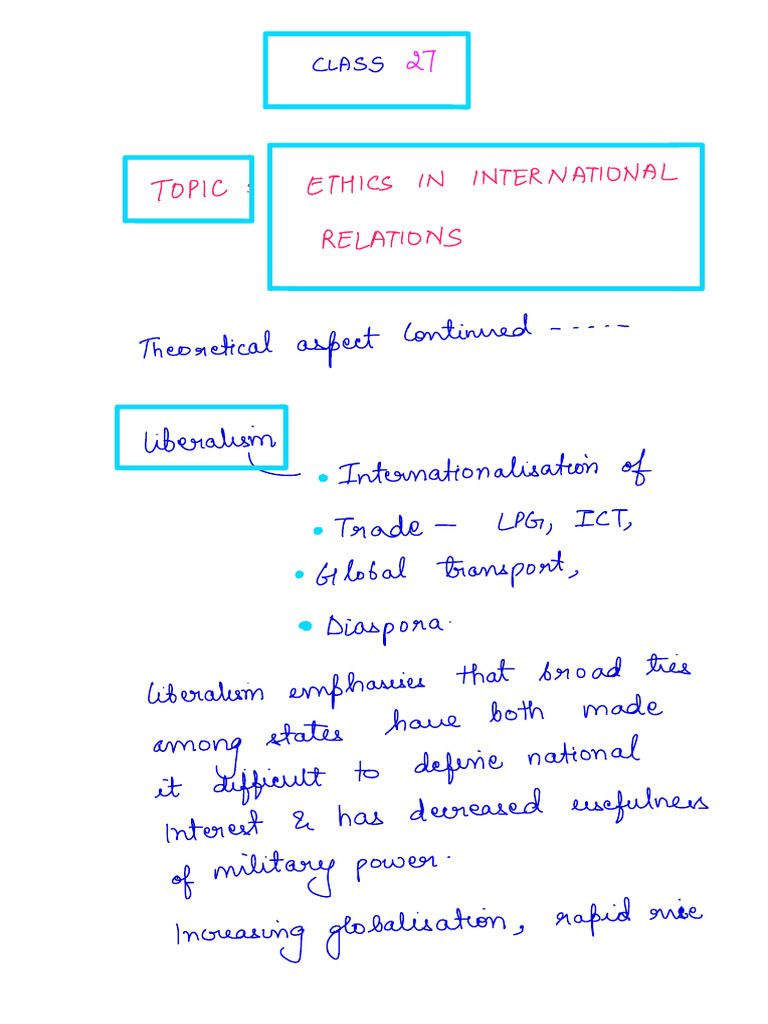 CLASS 27
TOPIC : ETHICS IN INTERNATIONAL
RELATIONS
Theoretical aspect continued -----
Liberalism
• Internationalisation of
• Trade — LPG, ICT,
• Global transport,
• Diaspora.
Liberalism emphasises that broad ties
among states have both made
it difficult to define national
Interest & has decreased usefulness
of military power.
Increasing globalisation, rapid rise